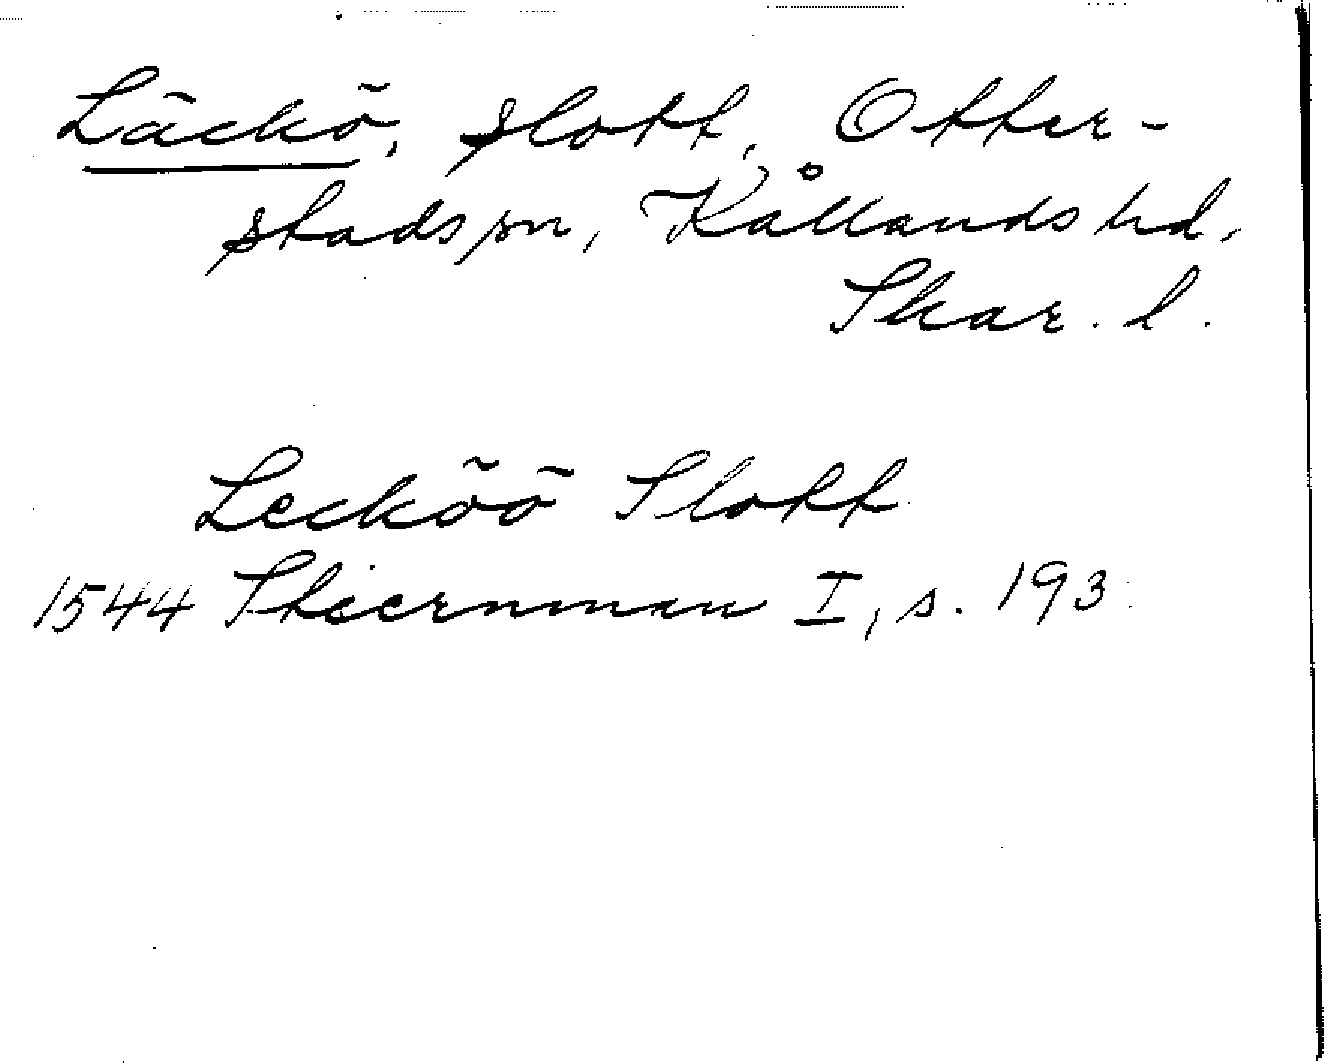 Läckö, slott, Otter-
stads sn, Kållands hd,
Skar. l.
Lecköö Slott
1544 Stiernman I, s. 193